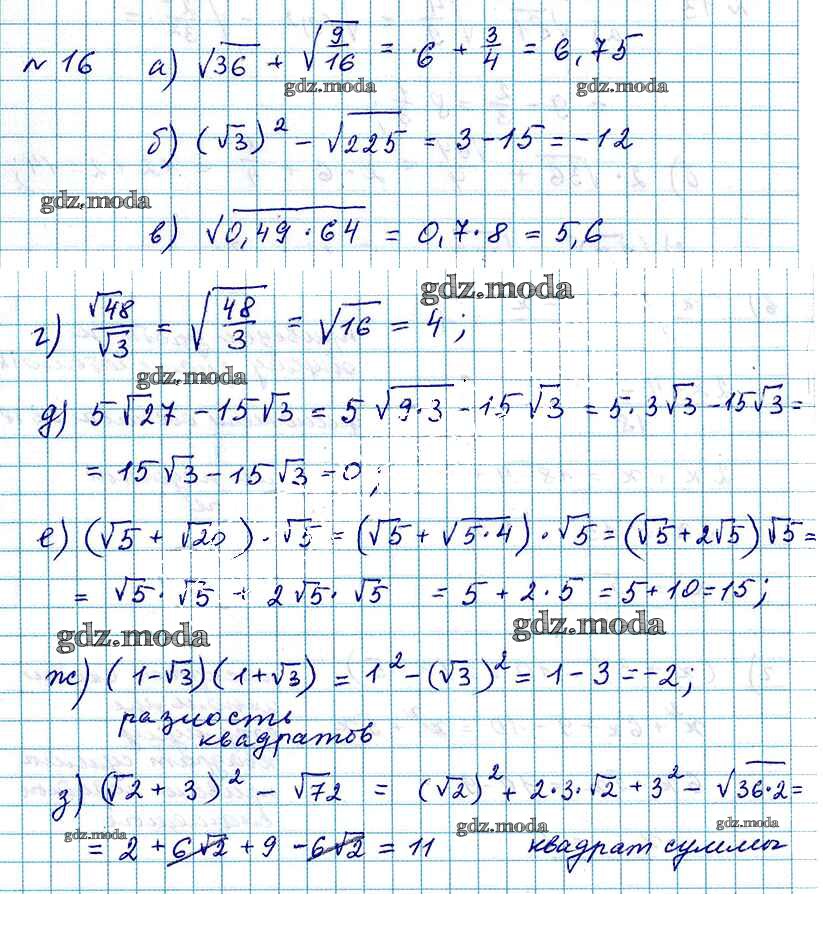 № 16 а) √36 + √(9/16) = 6 + 3/4 = 6,75
gdz.moda gdz.moda
б) (√3)² − √225 = 3 − 15 = −12
gdz.moda
в) √(0,49 · 64) = 0,7 · 8 = 5,6
gdz.moda
г) √48/√3 = √(48/3) = √16 = 4;
gdz.moda
д) 5√27 − 15√3 = 5√(9·3) − 15√3 = 5·3√3 − 15√3 =
= 15√3 − 15√3 = 0;
е) (√5 + √20) · √5 = (√5 + √(5·4)) · √5 = (√5 + 2√5)√5 =
= √5 · √5 + 2√5 · √5 = 5 + 2·5 = 5 + 10 = 15;
gdz.moda gdz.moda
ж) (1 − √3)(1 + √3) = 1² − (√3)² = 1 − 3 = −2;
разность
квадратов
з) (√2 + 3)² − √72 = (√2)² + 2·3·√2 + 3² − √(36·2) =
gdz.moda gdz.moda gdz.moda
= 2 + 6√2 + 9 − 6√2 = 11 квадрат суммы